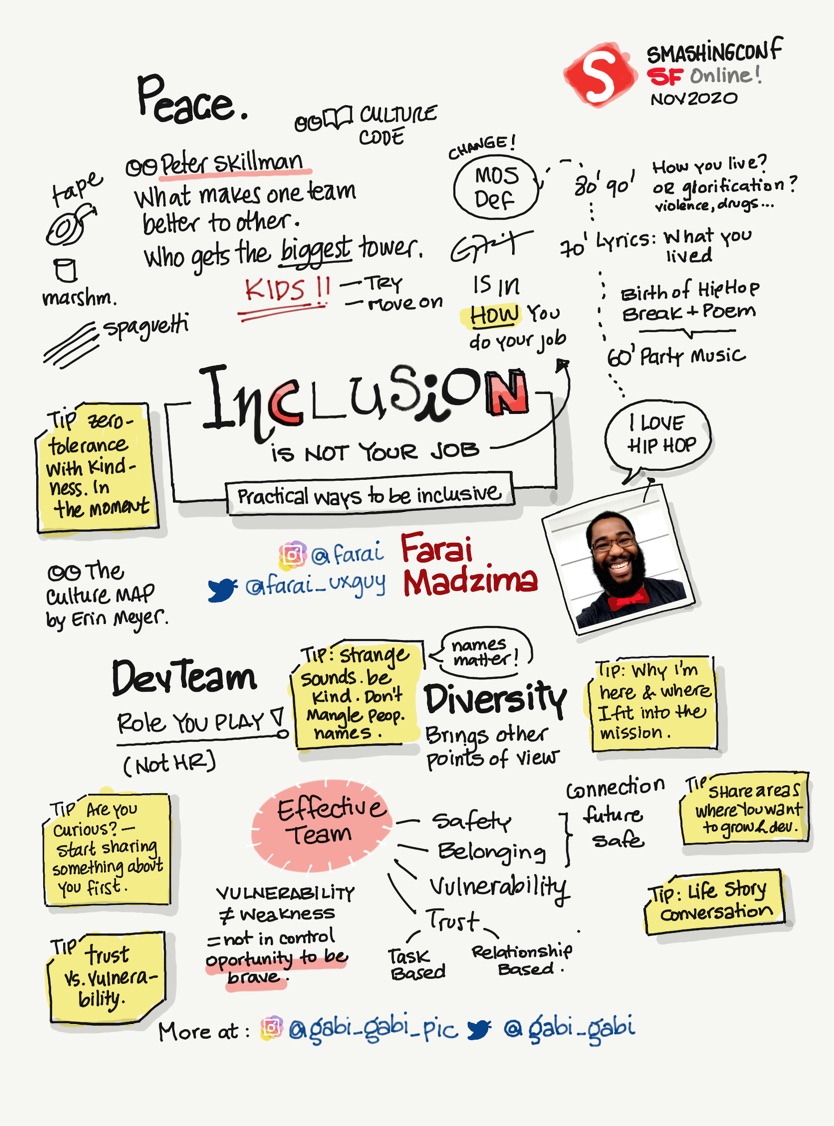 SMASHINGCONF
SF Online!
NOV2020
Peace.
CULTURE
CODE
Peter Skillman
What makes one team
better to other.
Who gets the biggest tower.
KIDS !!
Try
move on
tape
marshm.
spaguetti
CHANGE!
MOS
Def
IS IN
HOW You
do your job
80' 90'
How you live?
OR glorification?
violence, drugs...
70' Lyrics: What you
lived
Birth of HipHop
Break + Poem
60' Party Music
I LOVE
HIP HOP
InCLUSiON
IS NOT YOUR JOB
Practical ways to be inclusive
TIP zero-
tolerance
with Kind-
ness. In
the moment
@farai
@farai_uxguy
Farai
Madzima
The
Culture MAP
by Erin Meyer.
DevTeam
Role YOU PLAY
(Not HR)
TIP: Strange
sounds. be
Kind. Don't
Mangle Peop.
names.
names
matter!
Diversity
Brings other
points of view
TIP: Why I'm
here & where
I fit into the
mission.
TIP Are You
Curious? –
Start sharing
something about
You first.
TIP trust
vs. Vulnera-
bility.
Effective
Team
Safety
Belonging
Vulnerability
Trust
Task
Based
Relationship
Based.
Connection
future
safe
VULNERABILITY
≠ Weakness
= not in control
oportunity to be
brave.
TIP Share areas
where You want
to grow & dev.
Tip: Life Story
Conversation
More at: @gabi_gabi_pic @gabi_gabi